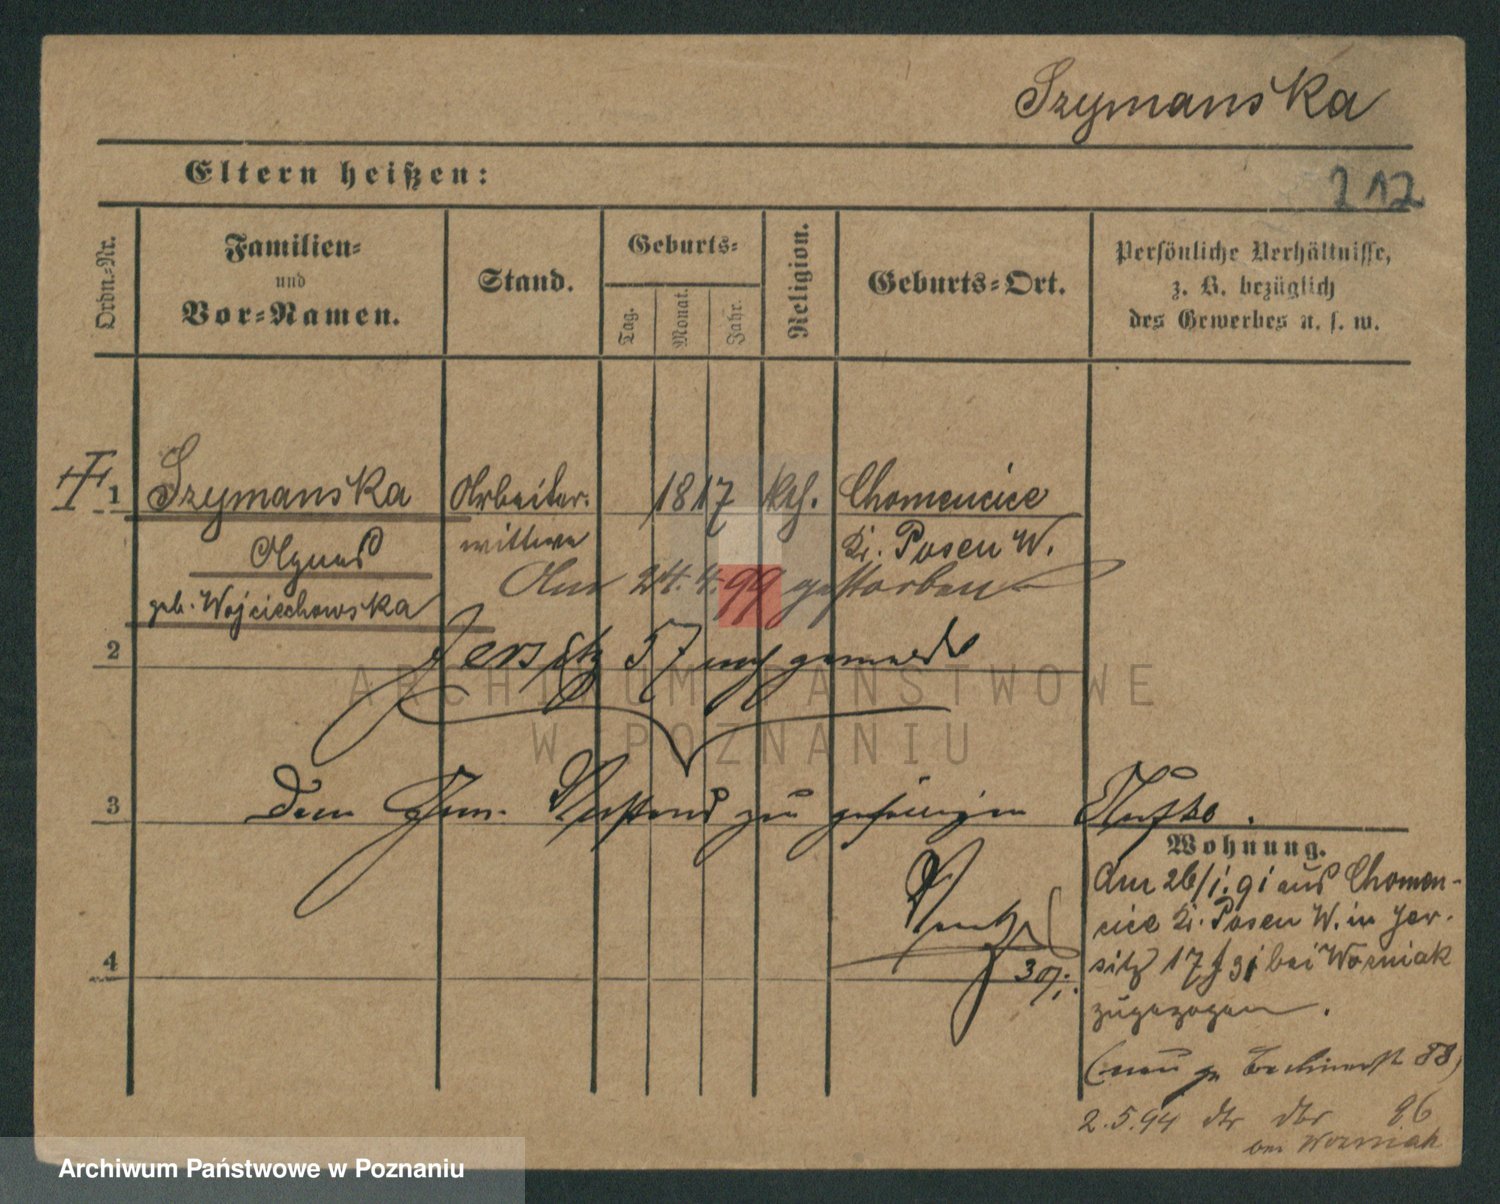 Szymanska
Eltern heißen:
212
Ordn.-Nr.
Familien-
und
Vor-Namen.
Stand.
Geburts-
Tag.
Monat.
Jahr.
Religion.
Geburts-Ort.
Persönliche Verhältnisse,
z. B. bezüglich
des Gewerbes u. s. w.
1 Szymanska Arbeiter- 1817 kth. Chomencice
Agnes wittwe Kr. Posen W.
Am 24.4.99 gestorben
geb. Wojciechowska
2 Jersitz 57 gemeldet
3 Dem zu gefälligen
Wohnung.
Am 26/1.91 aus Chomen-
cice Kr. Posen W. in Jer-
sitz 17 bei Wozniak
zugezogen.
4
30/1.
88)
2.5.94 86
bei Wozniak
ARCHIWUM PAŃSTWOWE
W POZNANIU
Archiwum Państwowe w Poznaniu